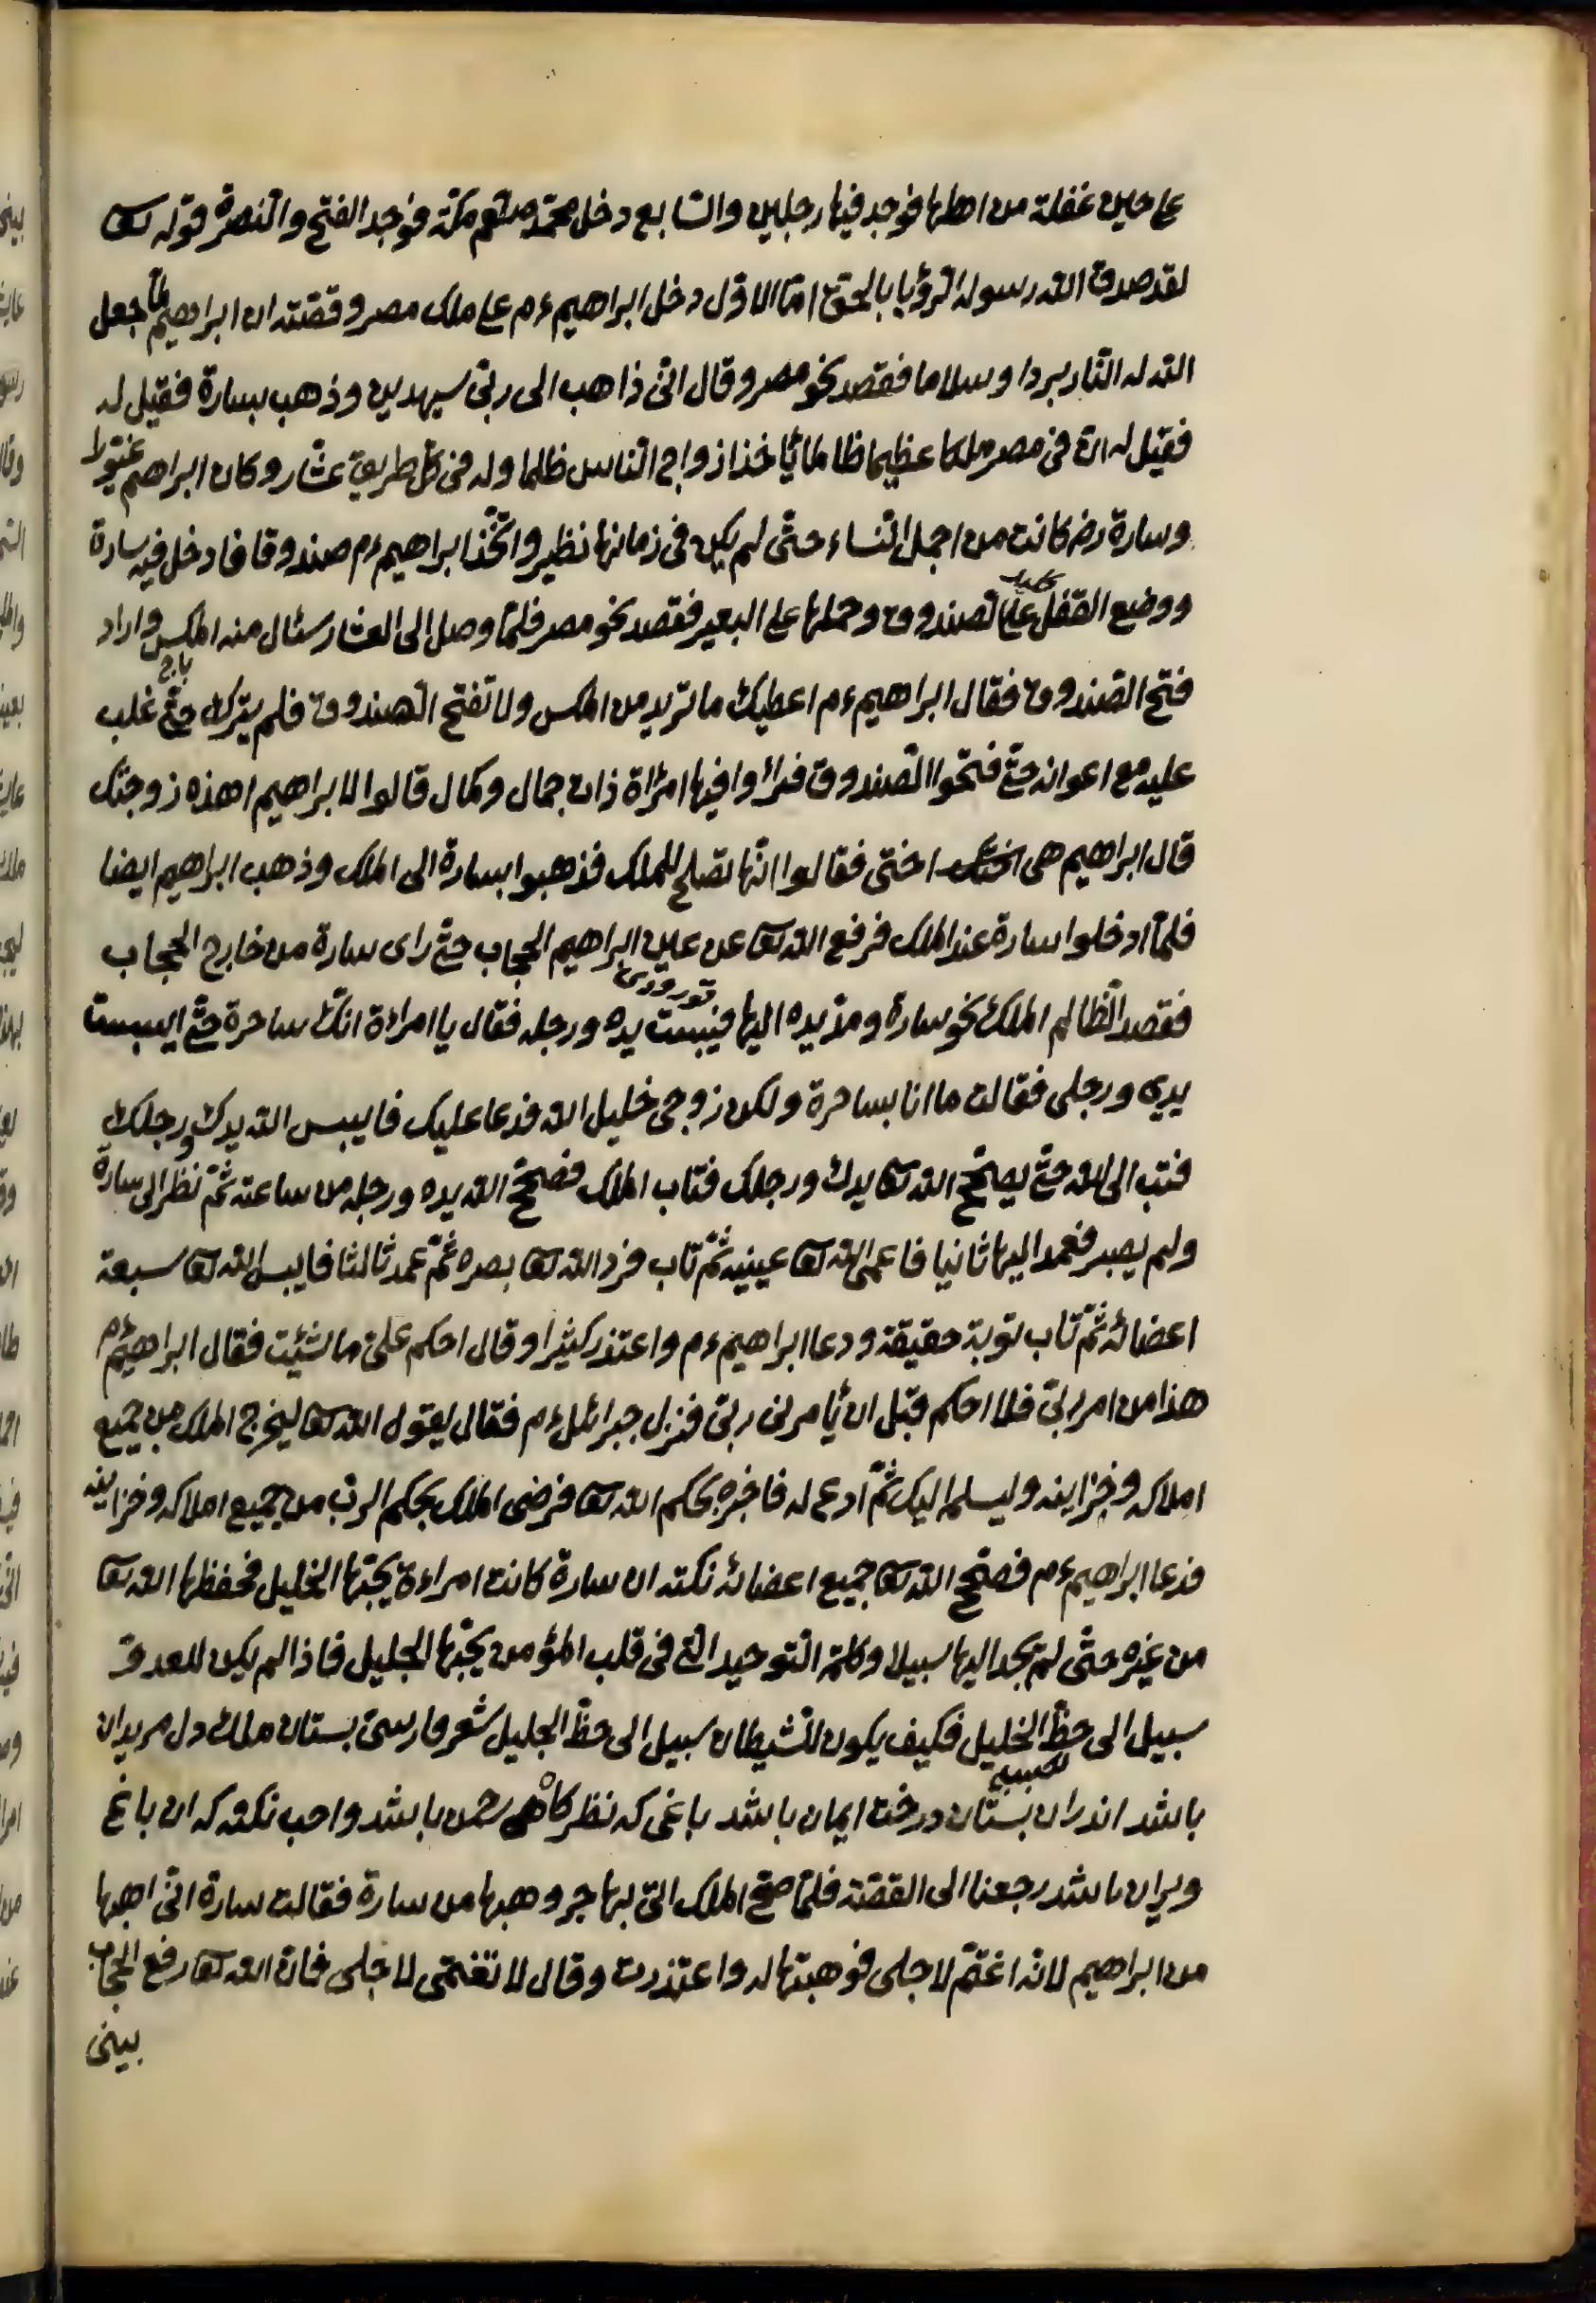 على حين غفلة من اهلها فوجد فيها رجلين والسّابع دخل محمّد صلعم مكّة فوجد الفتح والنصرة قوله تعا
لقد صدق الله رسوله الرّؤيا بالحق امّا الاوّل دخل ابراهيم ءم على ملك مصر وقصّته ان ابراهيم لمّا جعل
الله له النّار بردا وسلاما فقصد نحو مصر وقال انّى ذاهب الى ربّى سيهدين وذهب بسارة فقيل له
فقيل له انّ فى مصر ملكا عظيما ظالما يأخذ ازواج النّاس ظلما وله فى كلّ طريق عشّار وكان ابراهيم غيّورا
وسارة رض كانت من اجمل النّساء حتّى لم يكن فى زمانها نظير واتّخذ ابراهيم ءم صندوقا فادخل فيه سارة
ووضع القفل على الصندوق وحملها على البعير فقصد نحو مصر فلمّا وصل الى العشار سئال منه المكس واراد
باج
فتح الصّندوق فقال ابراهيم ءم اعطيك ما تريد من المكس ولا تفتح الصندوق فلم يترك حتّى غلب
عليه مع اعوانه حتّى فتحوا الصّندوق فرأوا فيها امرأة ذات جمال وكمال قالوا لابراهيم اهذه زوجتك
قال ابراهيم هى اختى فقالوا انّها تصلح للملك فذهبوا بسارة الى الملك وذهب ابراهيم ايضا
فلمّا ادخلوا سارة عند الملك فرفع الله تعا عن عين ابراهيم الحجاب حتّى راى سارة من خارج الحجاب
فقصد الظّالم الملك نحو سارة ومدّ يده اليها فيبست يده ورجله فقال يا امراءة انّك ساحرة حتّى ايبست
يدى ورجلى فقالت ما انا بساحرة ولكن زوجى خليل الله فدعا عليك فايبس الله يدك ورجلك
فتب الى الله حتّى يصحّح الله تعا يدك ورجلك فتاب الملك فصحّح الله يده ورجله من ساعته ثمّ نظر الى سارة
ولم يصبر فعمد اليها ثانيا فاعمى الله تعا عينيه ثمّ تاب فردّ الله تعا بصره ثمّ عمد ثالثا فايبس الله تعا سبعة
اعضائه ثمّ تاب توبة حقيقة ودعا ابراهيم ءم واعتذر كثيرا وقال احكم علىّ ما شئيت فقال ابراهيم ءم
هذا من امر ربّى فلا احكم قبل ان يأمرنى ربّى فنزل جبرائيل ءم فقال يقول الله تعا ليخرج الملك من جميع
املاكه وخزاينه وليسلمه اليك ثمّ ادع له فاخبره بحكم الله تعا فرضى الملك بحكم الربّ من جميع املاكه وخزاينه
فدعا ابراهيم ءم فصحّح الله تعا جميع اعضائه نكته ان سارة كانت امراءة يحبّها الخليل فحفظها الله تعا
من غيره حتّى لم يجد اليها سبيلا وكلمة التّوحيد الّتى فى قلب المؤمن يحبّها الجليل فاذا لم يكن للعدوّ
سبيل الى حظّ الخليل فكيف يكون للشّيطان سبيل الى حظّ الجليل شعر فارسى بستان ملك دل مريدان
باشد اندران بستان درخت ايمان باشد باغى كه نظر كاهى رحمن باشد واحب نكو كه ان باغ
ويران باشد رجعنا الى القصّة فلمّا صحّ الملك اتى بهاجر وهبها من سارة فقالت سارة انّى اهبها
من ابراهيم لانّه اغتمّ لاجلى فوهبتها له واعتذرت وقال لا تغتمى لاجلى فانّ الله تعا رفع الحجاب
بينى